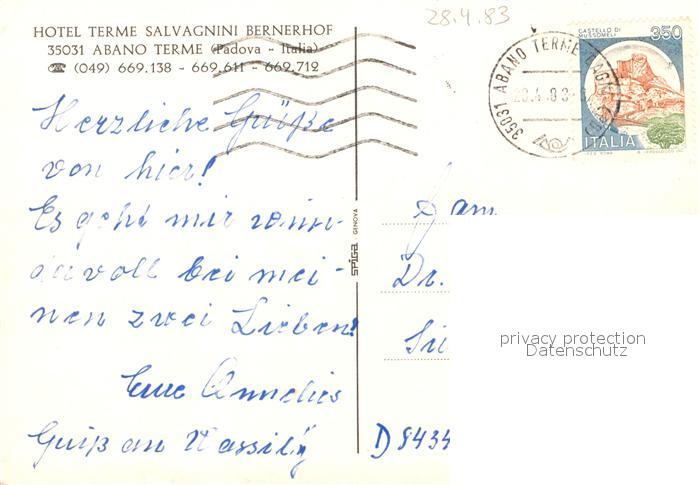 28.4.83
HOTEL TERME SALVAGNINI BERNERHOF
35031 ABANO TERME (Padova - Italia)
☎ (049) 669.138 - 669.611 - 669.712
CASTELLO DI MUSSOMELI
350
ITALIA
35031 ABANO TERME
28.4.83
Herzliche Grüße
von hier!
Es geht mir wun-
dervoll bei mei-
nen zwei Lieben!
Eure Annelies
Gruß an Wassily
spiga GENOVA
Dr.
D 8434
privacy protection
Datenschutz